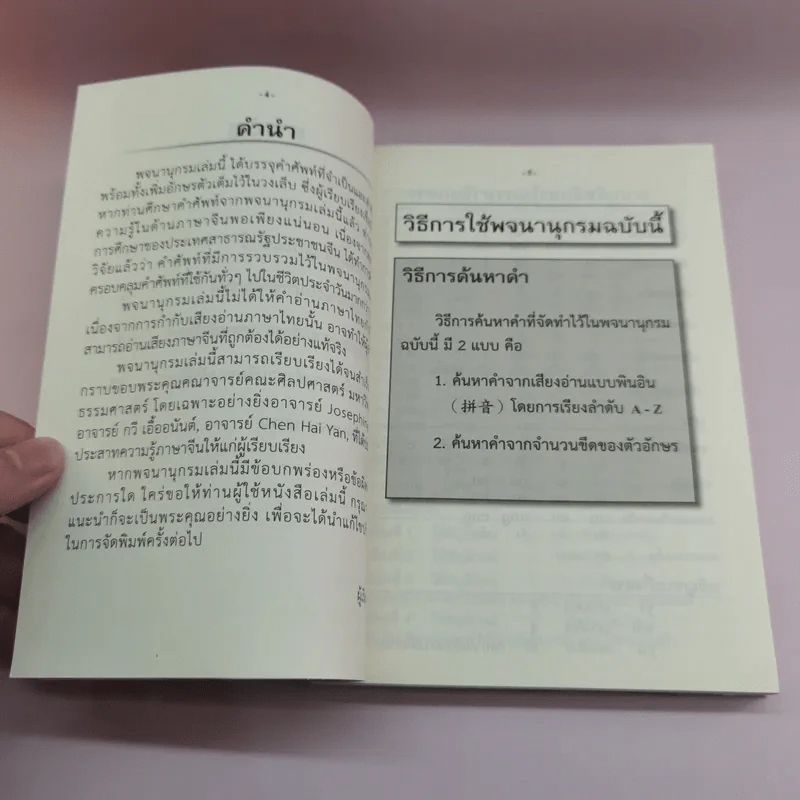 - 4 -
คำนำ
พจนานุกรมเล่มนี้ ได้บรรจุคำศัพท์ที่จำเป็น
พร้อมทั้งเพิ่มอักษรตัวเต็มไว้ในวงเล็บ ซึ่งผู้เรียบเรียง
หากท่านศึกษาคำศัพท์จากพจนานุกรมเล่มนี้แล้ว
ความรู้ในด้านภาษาจีนพอเพียงแน่นอน เนื่องจาก
การศึกษาของประเทศสาธารณรัฐประชาชนจีน ได้ทำการ
วิจัยแล้วว่า คำศัพท์ที่มีการรวบรวมไว้ในพจนานุกรม
ครอบคลุมคำศัพท์ที่ใช้กันทั่วๆ ไปในชีวิตประจำวันมากกว่า
พจนานุกรมเล่มนี้ไม่ได้ให้คำอ่านภาษาไทย
เนื่องจากการกำกับเสียงอ่านภาษาไทยนั้น อาจทำให้
สามารถอ่านเสียงภาษาจีนที่ถูกต้องได้อย่างแท้จริง
พจนานุกรมเล่มนี้สามารถเรียบเรียงได้จน
กราบขอบพระคุณคณาจารย์คณะศิลปศาสตร์
ธรรมศาสตร์ โดยเฉพาะอย่างยิ่งอาจารย์
อาจารย์ กวี เอื้ออนันต์, อาจารย์ Chen Hai Yan, ที่ได้
ประสาทความรู้ภาษาจีนให้แก่ผู้เรียบเรียง
หากพจนานุกรมเล่มนี้มีข้อบกพร่องหรือ
ประการใด ใคร่ขอให้ท่านผู้ใช้หนังสือเล่มนี้
แนะนำก็จะเป็นพระคุณอย่างยิ่ง เพื่อจะได้นำ
ในการจัดพิมพ์ครั้งต่อไป
วิธีการใช้พจนานุกรมฉบับนี้
วิธีการค้นหาคำ
วิธีการค้นหาคำที่จัดทำไว้ในพจนานุกรม
ฉบับนี้ มี 2 แบบ คือ
1. ค้นหาคำจากเสียงอ่านแบบพินอิน
(拼音) โดยการเรียงลำดับ A - Z
2. ค้นหาคำจากจำนวนขีดของตัวอักษร